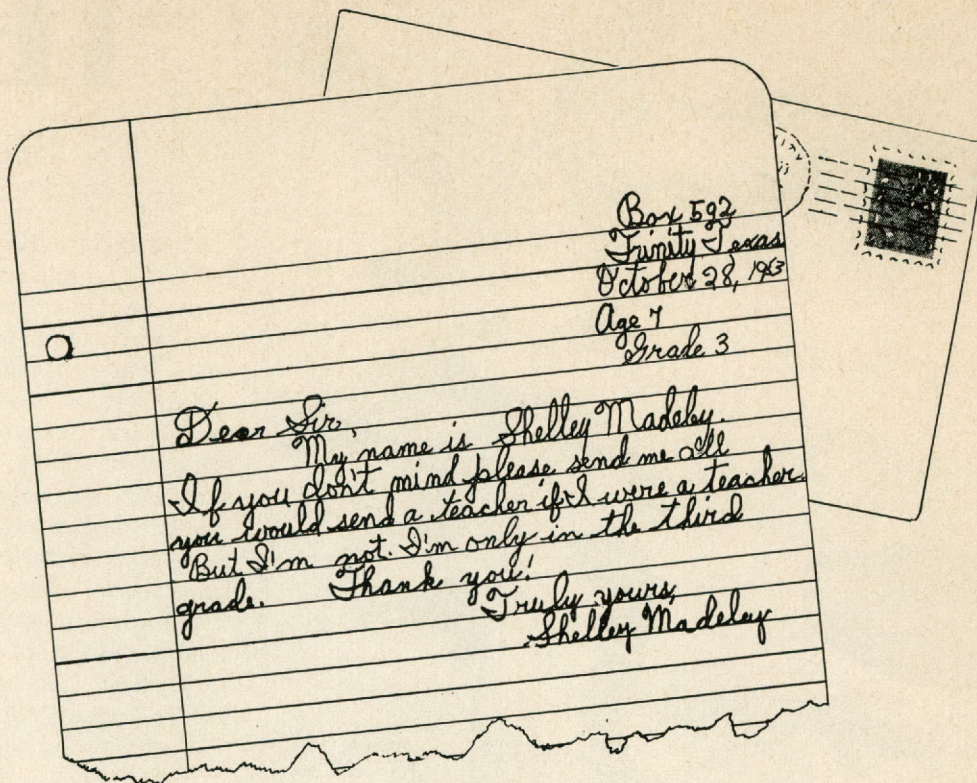 Box 592
Trinity Texas
October 28, 1963
Age 7
Grade 3
Dear Sir,
My name is Shelley Madeley.
If you don't mind please send me all
you would send a teacher if I were a teacher.
But I'm not. I'm only in the third
grade. Thank you!
Truly yours,
Shelley Madeley